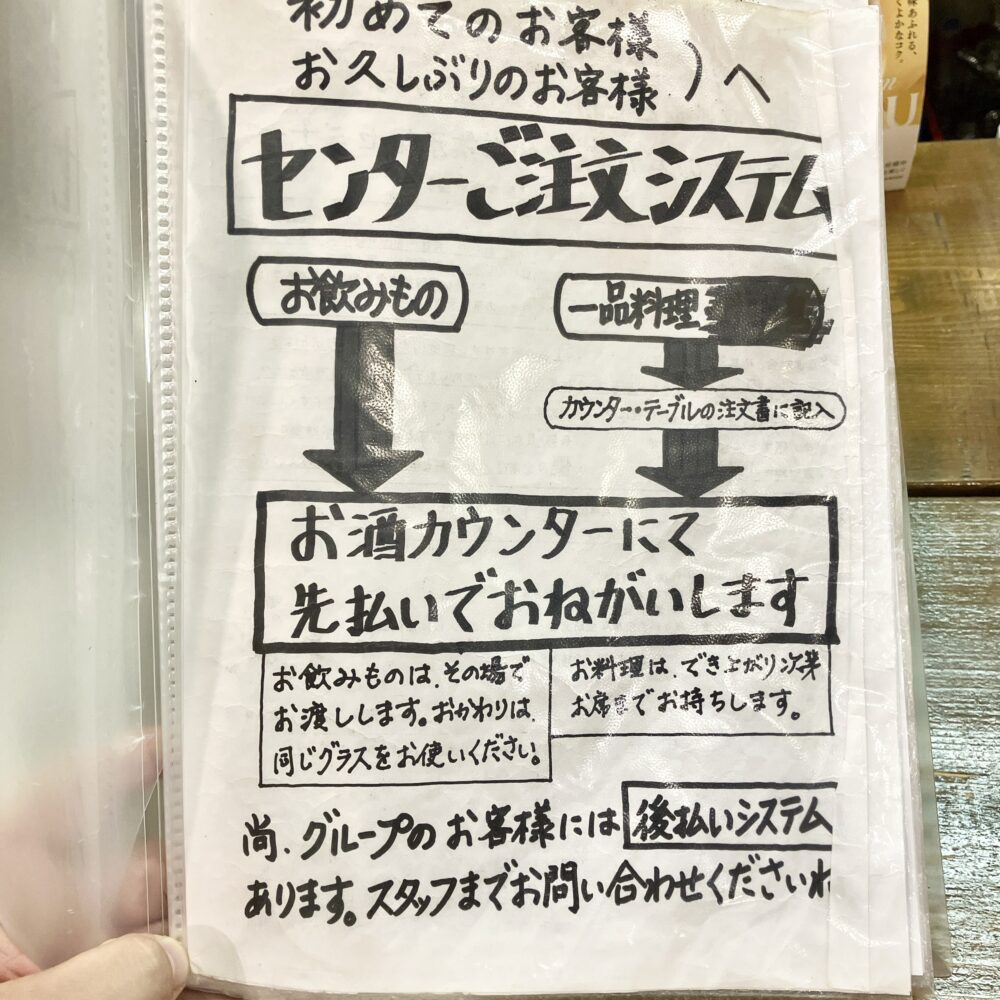 初めてのお客様
お久しぶりのお客様)へ
センターご注文システム
お飲みもの
一品料理
カウンター・・テーブルの注文書に記入
お酒カウンターにて
先払いでおねがいします
お飲みものは、その場で
お渡しします。おかわりは、
同じグラスをお使いください。
お料理は、でき上がり次第
お席までお持ちします。
尚、グループのお客様には後払いシステム
あります。スタッフまでお問い合わせくださいね
味あふれる、
くよかなコク。